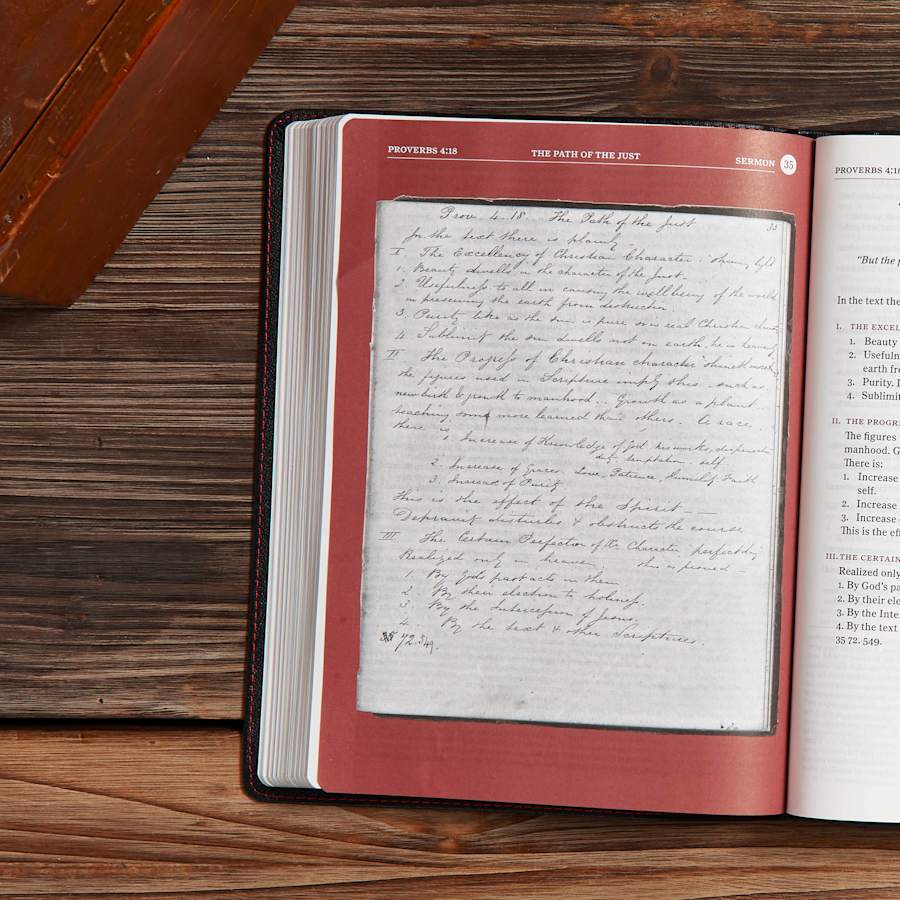 PROVERBS 4:18 THE PATH OF THE JUST SERMON 35
Prov. 4.18 The Path of the Just 35
In the text there is plainly
I. The Excellency of Christian Character: shining light
1. Beauty dwells in the character of the Just.
2. Usefulness to all in causing the wellbeing of the world
in preserving the earth from destruction.
3. Purity like as the sun is pure, so is real Christian
4. Sublimity the sun dwells not on earth, he is heavenly
II The Progress of Christian character "shineth more
the figures used in Scripture imply this, such as
new birth & growth to manhood. Growth as a plant
teaching some more learned than others. A race
there is
1. Increase of Knowledge of God, his works, dispensation
temptation self
2. Increase of Graces, Love, Patience, Humility, Faith
3. Increase of Purity
This is the effect of the Spirit
Depravity disturbs & obstructs the course
III The Certain Perfection of the Character perfect day
Realized only in heaven, this is proved
1. By Gods past acts in them
2. By their election to holiness.
3. By the Intercession of Jesus.
4. By the text & other Scriptures.
35 72.549.
PROVERBS 4:18
"But the
In the text the
I. THE EXCEL
1. Beauty
2. Usefuln
earth fro
3. Purity.
4. Sublimit
II. THE PROGRE
The figures
manhood. G
There is:
1. Increase
self.
2. Increase
3. Increase
This is the eff
III. THE CERTAIN
Realized only
1. By God's pa
2. By their ele
3. By the Inte
4. By the text
35 72. 549.